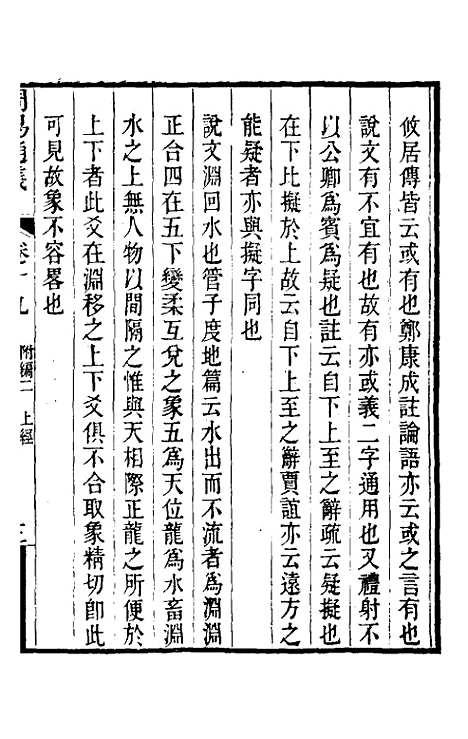 攸居傳皆云或有也鄭康成註論語亦云或之言有也
說文有不宜有也故有亦或義二字通用也又禮射不
以公卿爲賓爲疑也註云自下上至之辭疏云疑擬也
在下比擬於上故云自下上至之辭賈誼亦云遠方之
能疑者亦與擬字同也
說文淵回水也管子度地篇云水出而不流者爲淵淵
正台四在五下變柔互兌之象五爲天位龍爲水畜淵
水之上無人物以間隔之惟與天相際正龍之所便於
上下者此爻在淵移之上下爻俱不合取象精切卽此
可見故象不容畧也
周易通義
卷十九
附編二
上經